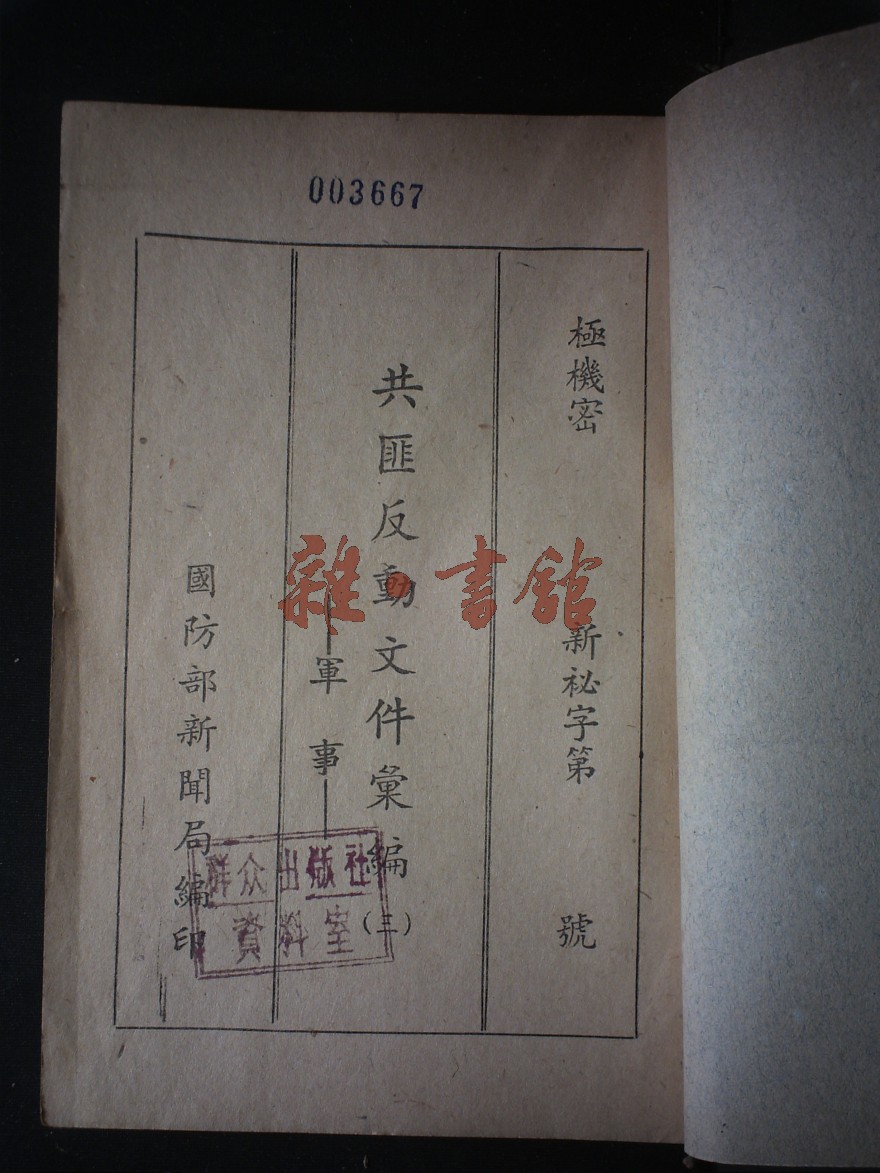 003667
極機密
新祕字第
號
共匪反動文件彙編(三)
——軍事——
國防部新聞局編印
群众出版社
資料室
雜·書館